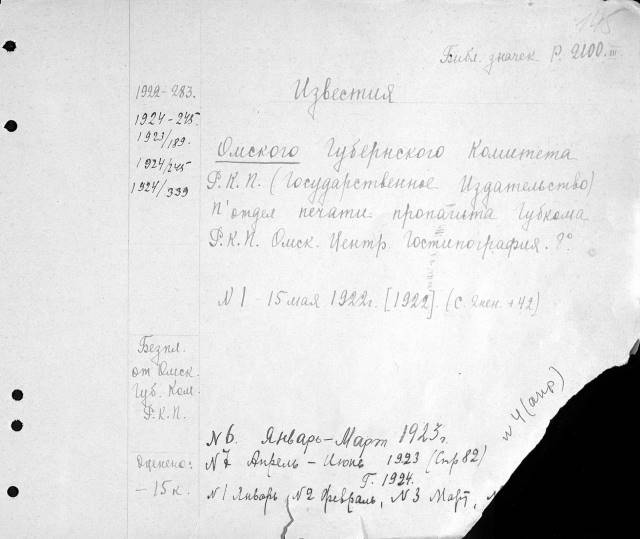 145
Библ. значек P. 2100.III
1922-283.
1924-245.
1923/189.
1924/245
1924/339
Известия
Омского Губернского Комитета
Р.К.П. (Государственное Издательство)
П'отдел печати пропагита Губкома
Р.К.П. Омск. Центр. Гостипография. 8°
N 1 - 15 мая 1922 г. [1922]. (с. 2 нен. + 42)
Безпл.
от Омск.
Губ. Ком.
Р.К.П.
Оценено:
- 15 к.
N 6. Январь-Март 1923 г.
N 7 Апрель - Июнь 1923 (Стр 82)
N 4 (апр)
Г. 1924.
N 1 Январь, N 2 Февраль, N 3 Март,